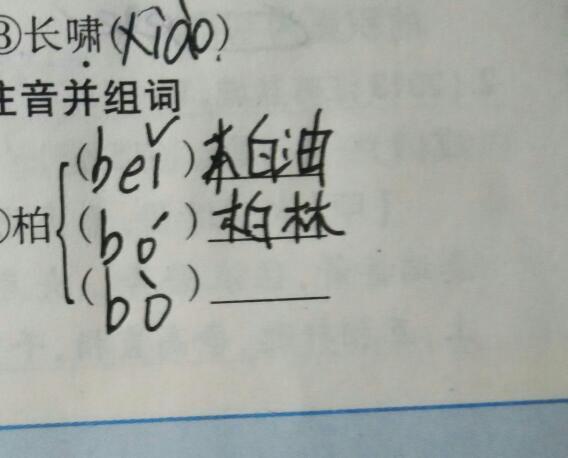 ③长啸(xiào)
注音并组词
(beǐ)柏油
柏{(bó)柏林
(bò)